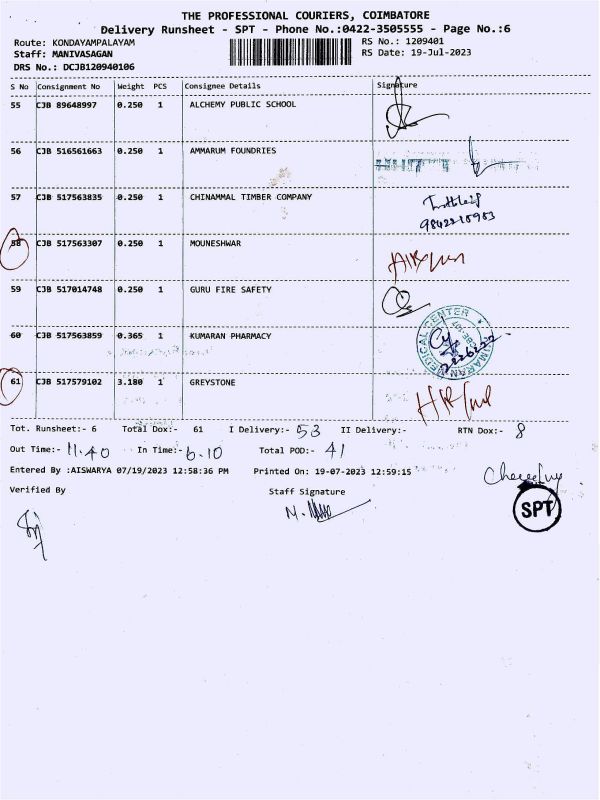 THE PROFESSIONAL COURIERS, COIMBATORE
Delivery Runsheet - SPT - Phone No.:0422-3505555 - Page No.:6
Route: KONDAYAMPALAYAM RS No.: 1209401
Staff: MANIVASAGAN RS Date: 19-Jul-2023
DRS No.: DCJB120940106
S No Consignment No Weight PCS Consignee Details Signature
55 CJB 89648997 0.250 1 ALCHEMY PUBLIC SCHOOL
56 CJB 516561663 0.250 1 AMMARUM FOUNDRIES
57 CJB 517563835 0.250 1 CHINAMMAL TIMBER COMPANY
58 CJB 517563307 0.250 1 MOUNESHWAR
59 CJB 517014748 0.250 1 GURU FIRE SAFETY
60 CJB 517563859 0.365 1 KUMARAN PHARMACY
MEDICAL CENTER
61 CJB 517579102 3.180 1 GREYSTONE
Tot. Runsheet:- 6 Total Dox:- 61 I Delivery:- 53 II Delivery:- RTN Dox:- 8
Out Time:- 11.40 In Time:- 6.10 Total POD:- 41
Entered By :AISWARYA 07/19/2023 12:58:36 PM Printed On: 19-07-2023 12:59:15
Verified By Staff Signature
SPT